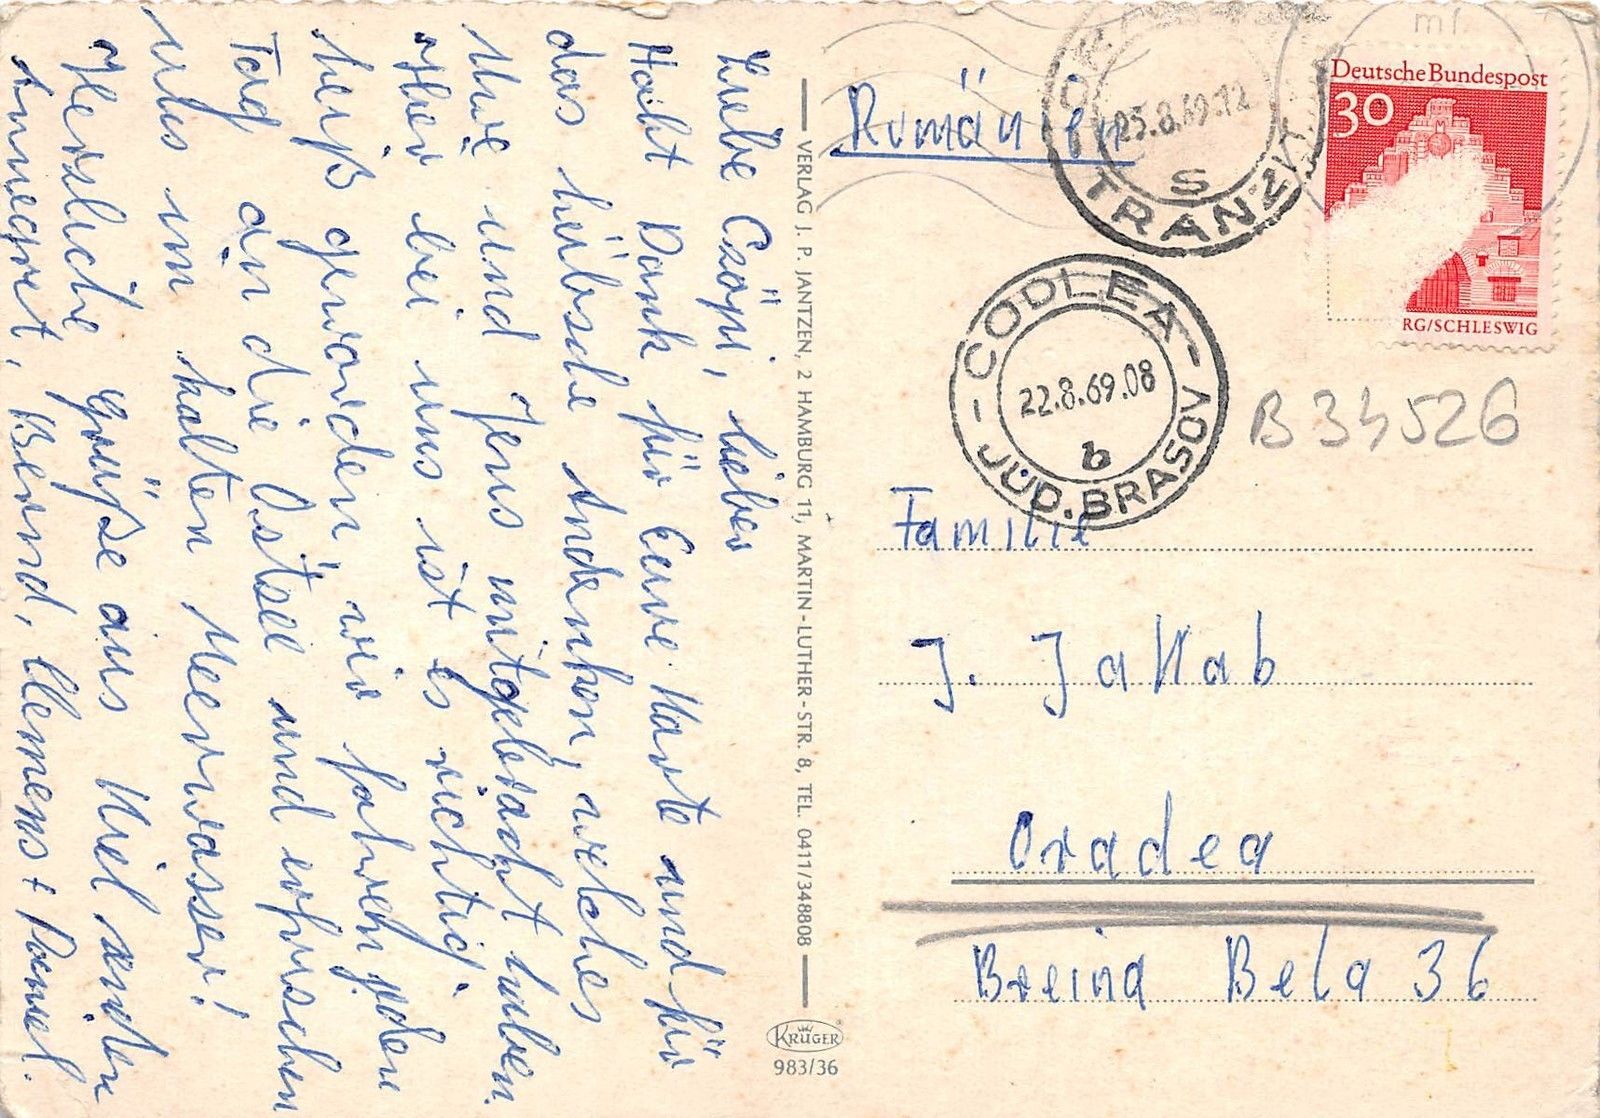 Liebe Czöpi, lieber
Habt Dank für Eure Karte und für
das hübsche Andenken, welches
Uwe und Jens mitgebracht haben.
Hier bei uns ist es richtig
heiß geworden, wir fahren jeden
Tag an die Ostsee und erfrischen
uns im kalten Meerwasser!
Herzliche Grüße aus Kiel
Annegret, Bernd, Clemens +
VERLAG J. P. JANTZEN, 2 HAMBURG 11, MARTIN-LUTHER-STR. 8, TEL. 0411/348808
KRÜGER
983/36
Rumänien
25.8.69.12
S
TRANZIT
Deutsche Bundespost
30
RG/SCHLESWIG
CODLEA
22.8.69.08
b
JUD. BRASOV
B 34526
Familie
J. Jakab
Oradea
Breina Bela 36